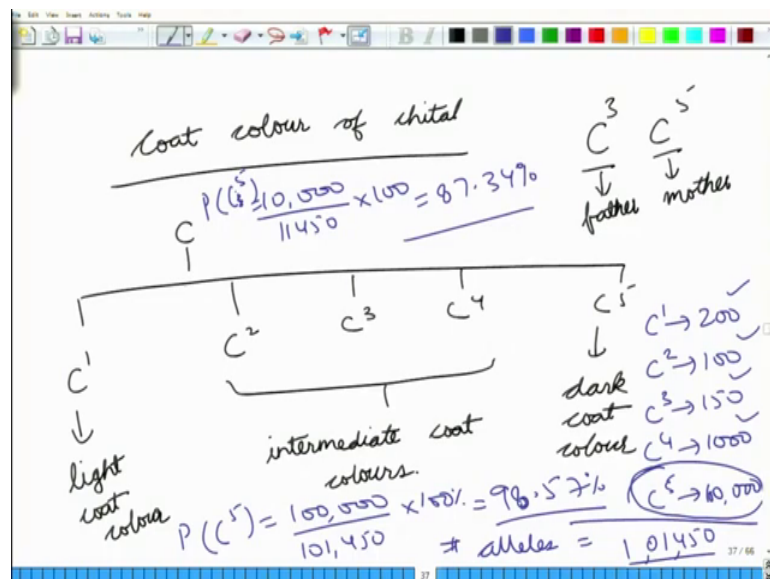 File Edit View Insert Actions Tools Help
B I
coat colour of chital
C³ C⁵
father mother
P(C⁵) = 10,000 / 11450 × 100 = 87.34%
C
C¹ C² C³ C⁴ C⁵
light coat colour
intermediate coat colours.
dark coat colour
C¹ → 200
C² → 100
C³ → 150
C⁴ → 1000
C⁵ →
P(C⁵) = 100,000 / 101,450 × 100% = 98.57%
# alleles = 1,01,450
37 / 66
37